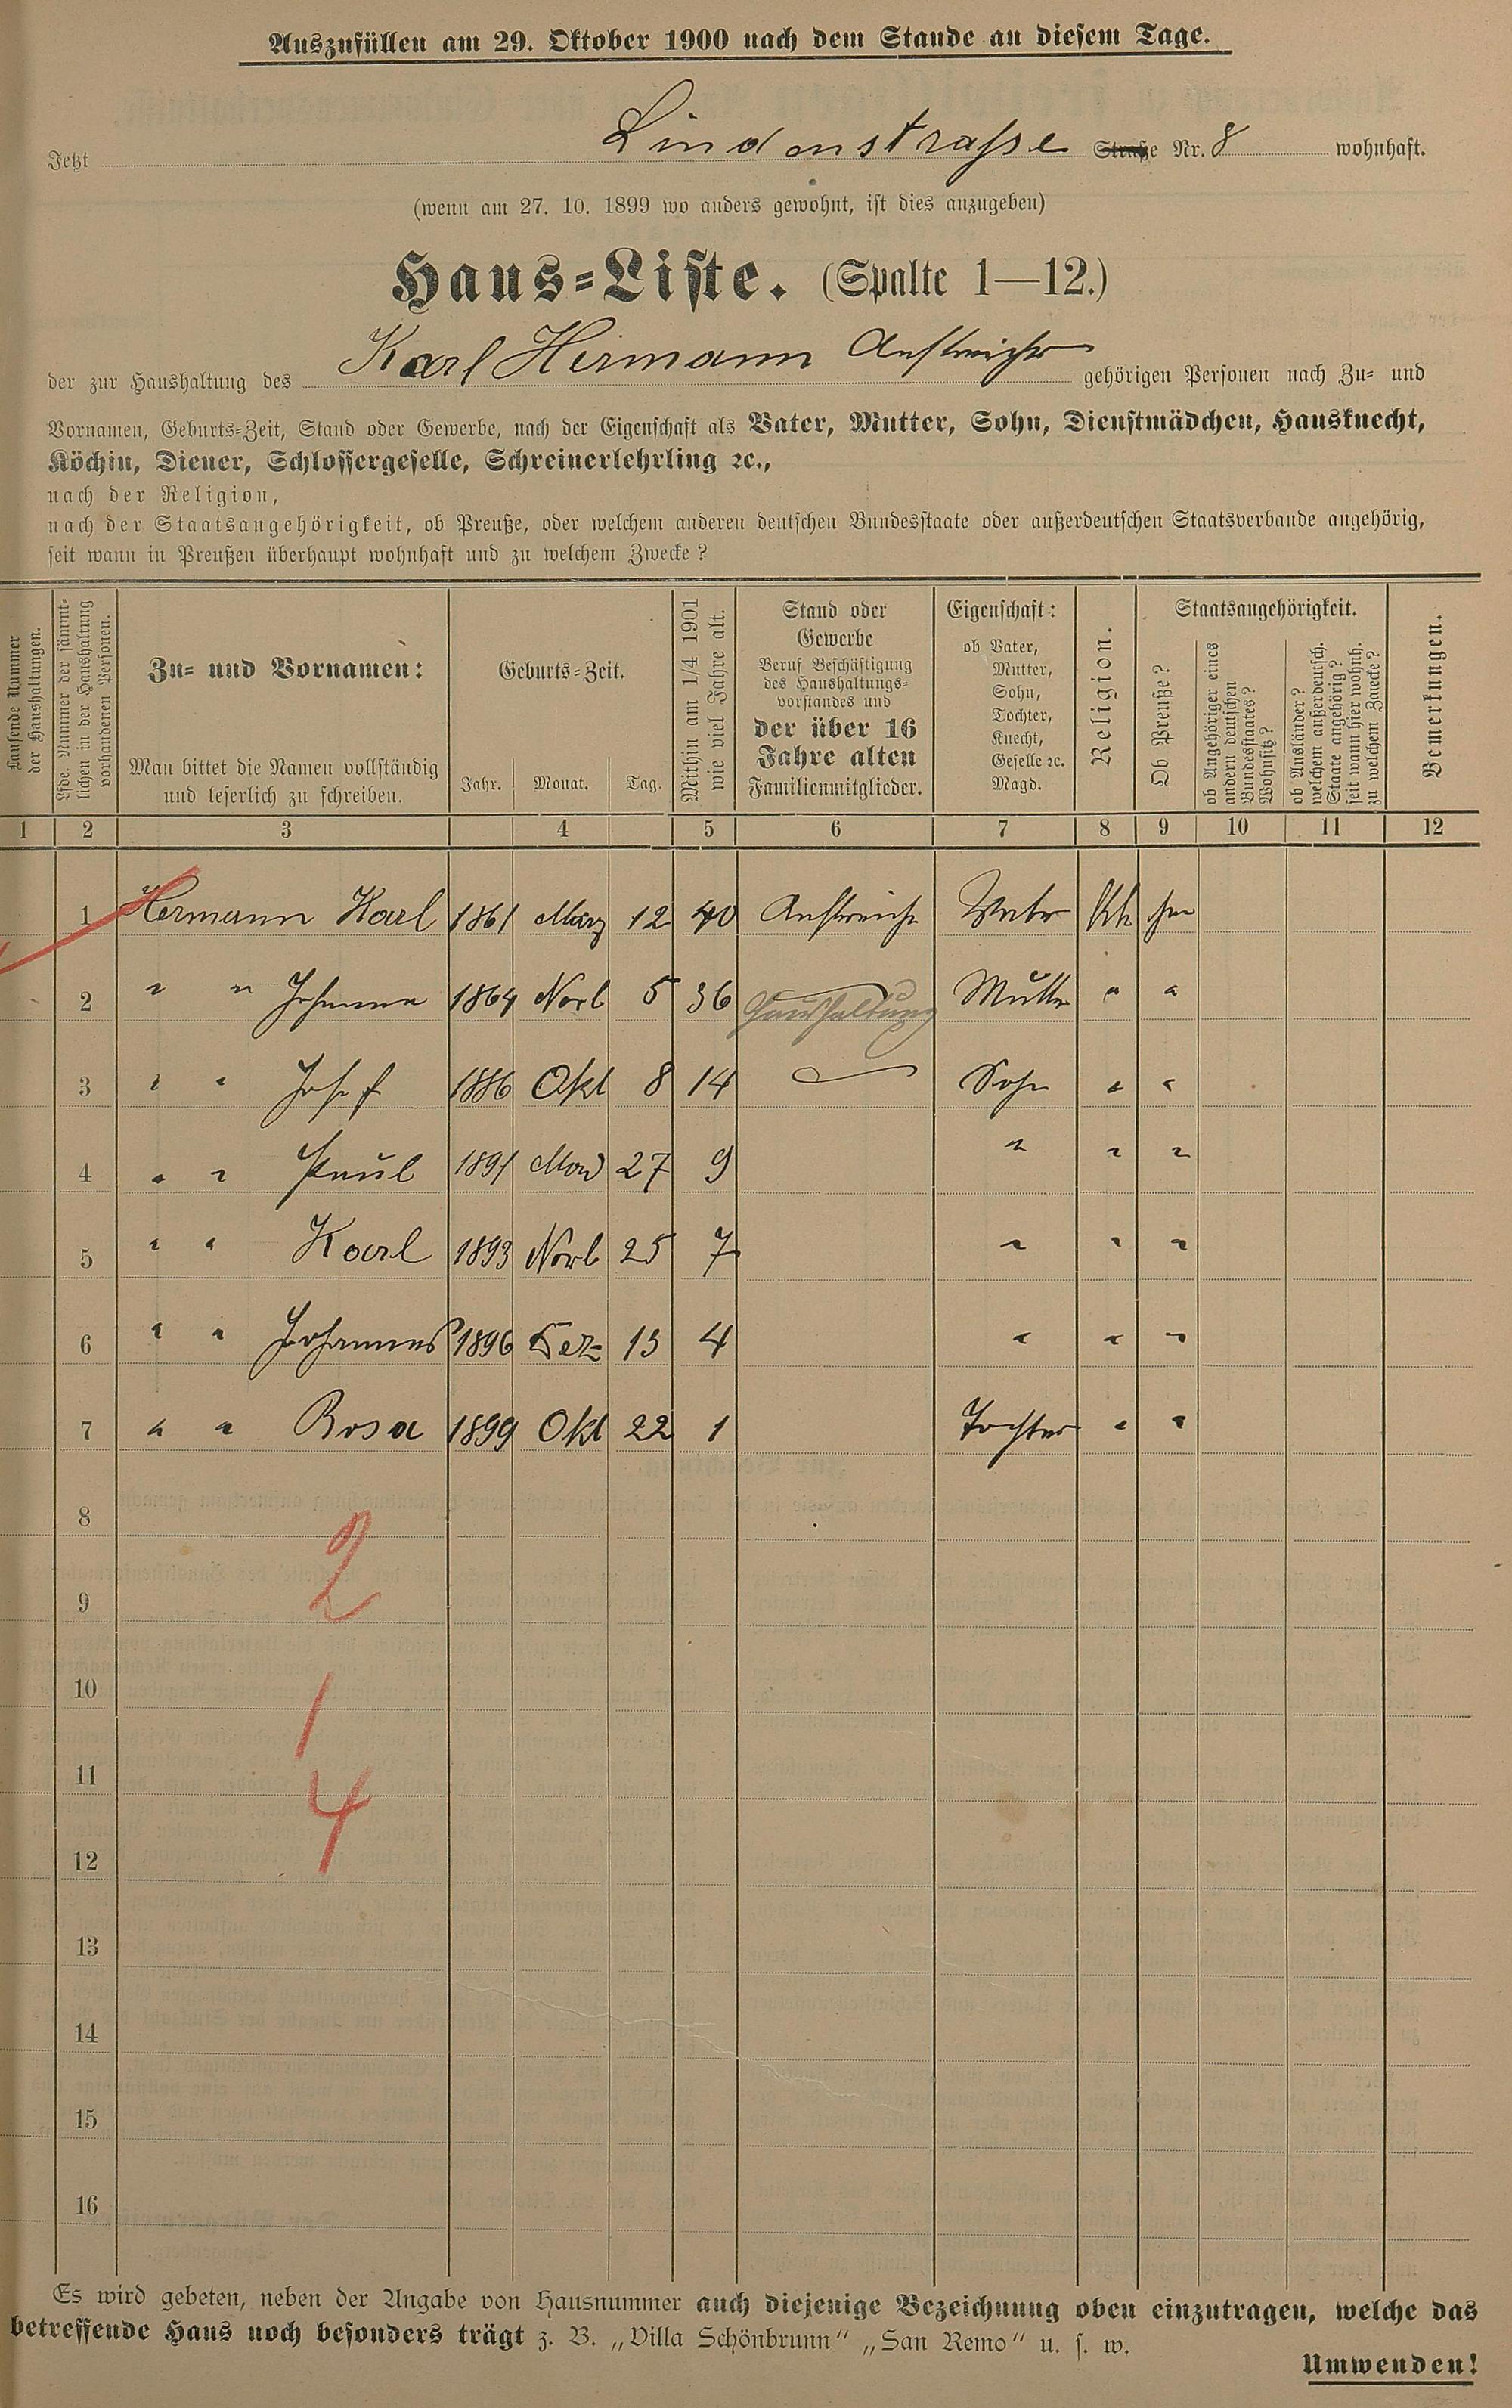 Auszufüllen am 29. Oktober 1900 nach dem Stande an diesem Tage.
Jetzt Lindenstraße Straße Nr. 8 wohnhaft.
(wenn am 27. 10. 1899 wo anders gewohnt, ist dies anzugeben)
Haus-Liste. (Spalte 1—12.)
der zur Haushaltung des Karl Hermann Anstreicher gehörigen Personen nach Zu- und
Vornamen, Geburts-Zeit, Stand oder Gewerbe, nach der Eigenschaft als Vater, Mutter, Sohn, Dienstmädchen, Hausknecht,
Köchin, Diener, Schlossergeselle, Schreinerlehrling ꝛc.,
nach der Religion,
nach der Staatsangehörigkeit, ob Preuße, oder welchem anderen deutschen Bundesstaate oder außerdeutschen Staatsverbande angehörig,
seit wann in Preußen überhaupt wohnhaft und zu welchem Zwecke?
Laufende Nummer
der Haushaltungen.
Lfde. Nummer der sämmt-
lichen in der Haushaltung
vorhandenen Personen.
Zu- und Vornamen:
Man bittet die Namen vollständig
und leserlich zu schreiben.
Geburts-Zeit.
Jahr. Monat. Tag.
Mithin am 1/4 1901
wie viel Jahre alt.
Stand oder
Gewerbe
Beruf Beschäftigung
des Haushaltungs-
vorstandes und
der über 16
Jahre alten
Familienmitglieder.
Eigenschaft:
ob Vater,
Mutter,
Sohn,
Tochter,
Knecht,
Geselle ꝛc.
Magd.
Religion.
Staatsangehörigkeit.
Ob Preuße?
ob Angehöriger eines
andern deutschen
Bundesstaates?
Wohnsitz?
ob Ausländer?
welchem außerdeutsch.
Staate angehörig?
seit wann hier wohnh.
zu welchem Zwecke?
Bemerkungen.
1 2 3 4 5 6 7 8 9 10 11 12
1 Hermann Karl 1861 März 12 40 Anstreicher Vater Kth
2 " " Johanna 1864 Novb 5 36 Haushaltung Mutter " "
3 " " Josef 1886 Okt 8 14 Sohn " "
4 " " Paul 1891 27 9 " " "
5 " " Karl 1893 Novb 25 7 " " "
6 " " Johannes 1896 Dez 13 4 " " "
7 " " Rosa 1899 Okt 22 1 Tochter " "
8
2
9
10
1
11
4
12
13
14
15
16
Es wird gebeten, neben der Angabe von Hausnummer auch diejenige Bezeichnung oben einzutragen, welche das
betreffende Haus noch besonders trägt z. B. „Villa Schönbrunn" „San Remo" u. s. w.
Umwenden!